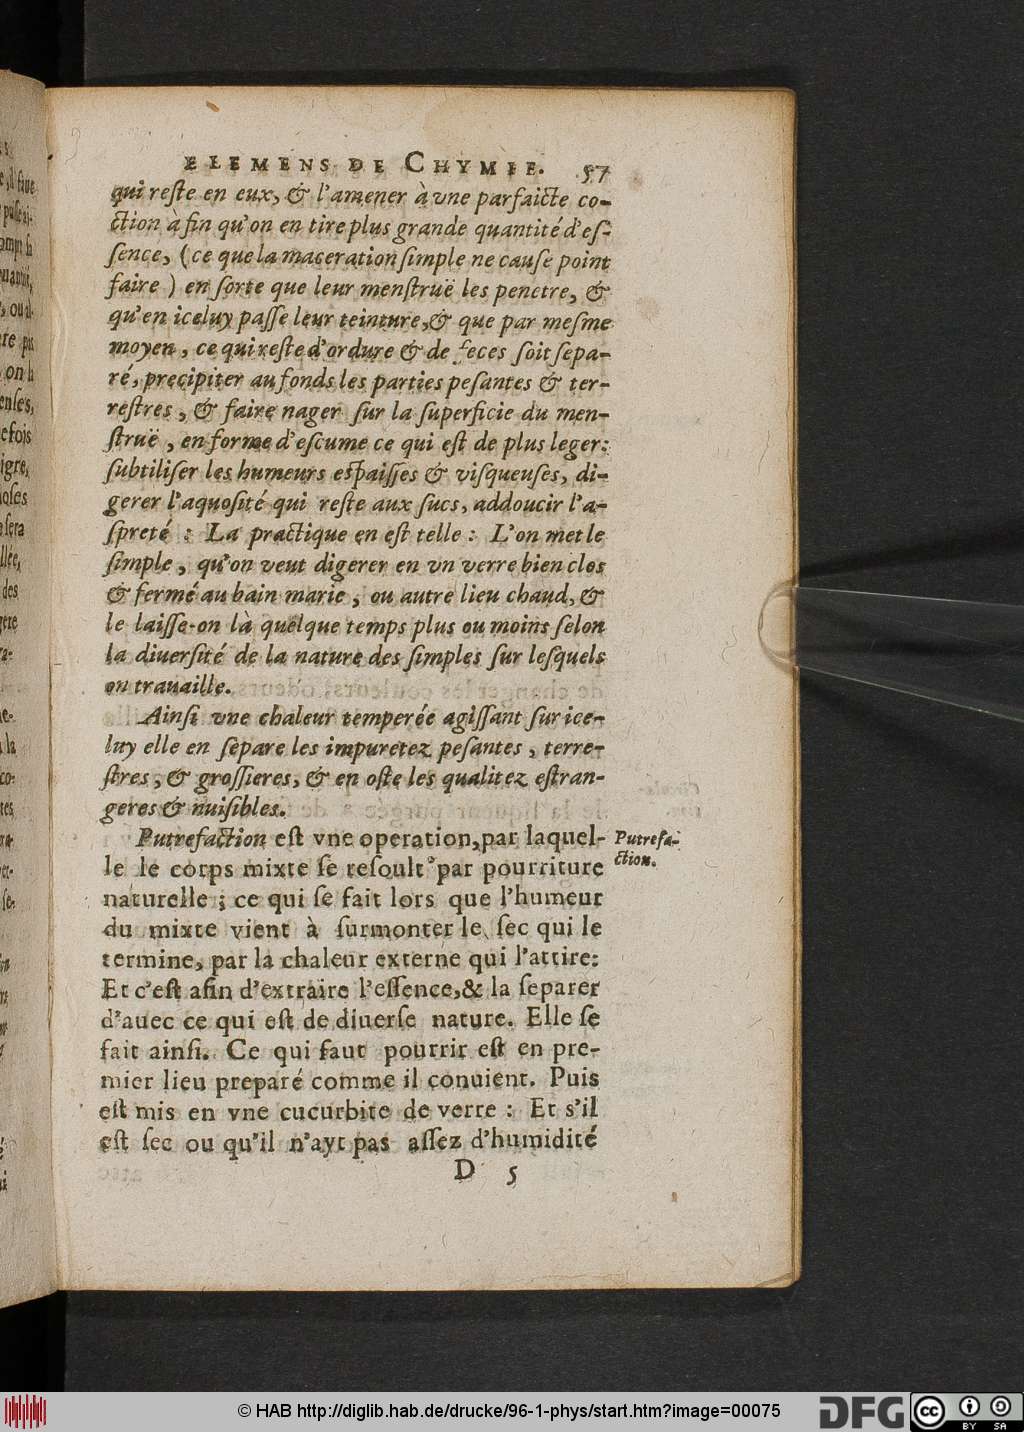 ELEMENS DE CHYMIE. 57
qui reſte en eux, & l'amener à vne parfaicte co-
ction à fin qu'on en tire plus grande quantité d'eſ-
ſence, (ce que la maceration ſimple ne cauſe point
faire) en ſorte que leur menſtruë les penetre, &
qu'en iceluy paſſe leur teinture,& que par meſme
moyen, ce qui reſte d'ordure & de feces ſoit ſepa-
ré, precipiter au fonds les parties peſantes & ter-
reſtres, & faire nager ſur la ſuperficie du men-
ſtruë, en forme d'eſcume ce qui eſt de plus leger:
ſubtiliſer les humeurs eſpaiſſes & viſqueuſes, di-
gerer l'aquoſité qui reſte aux ſucs, addoucir l'a-
ſpreté : La practique en eſt telle : L'on met le
ſimple, qu'on veut digerer en vn verre bien clos
& fermé au bain marie, ou autre lieu chaud, &
le laiſſe-on là quelque temps plus ou moins ſelon
la diuerſité de la nature des ſimples ſur leſquels
on trauaille.
Ainſi vne chaleur temperée agiſſant ſur ice-
luy elle en ſepare les impuretez peſantes, terre-
ſtres, & groſſieres, & en oſte les qualitez eſtran-
geres & nuiſibles.
Putrefaction eſt vne operation,par laquel-
le le corps mixte ſe reſoult par pourriture
naturelle ; ce qui ſe fait lors que l'humeur
du mixte vient à ſurmonter le ſec qui le
termine, par la chaleur externe qui l'attire:
Et c'eſt afin d'extraire l'eſſence,& la ſeparer
d'auec ce qui eſt de diuerſe nature. Elle ſe
fait ainſi. Ce qui faut pourrir eſt en pre-
mier lieu preparé comme il conuient. Puis
eſt mis en vne cucurbite de verre : Et s'il
eſt ſec ou qu'il n'ayt pas aſſez d'humidité
D 5
Putrefa-
ction.
© HAB http://diglib.hab.de/drucke/96-1-phys/start.htm?image=00075
DFG
cc
BY SA